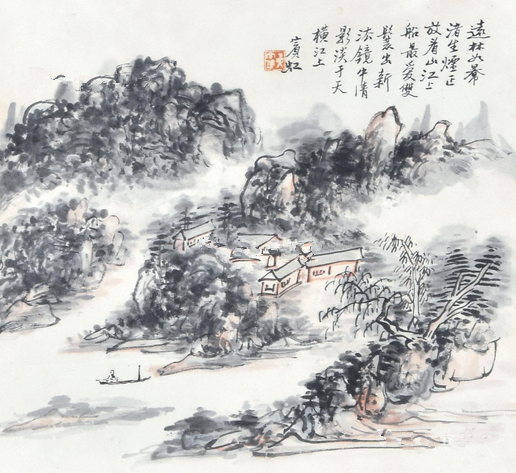 遠林如薺
渚生煙正
放看山江上
船最愛雙
鬟出新
沐鏡中清
影淡于天
橫江上
賓虹